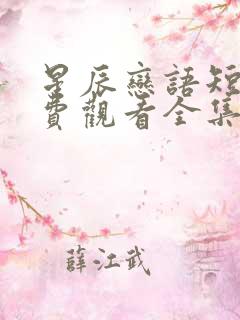 星辰戀語短
費觀看全集
薛江武